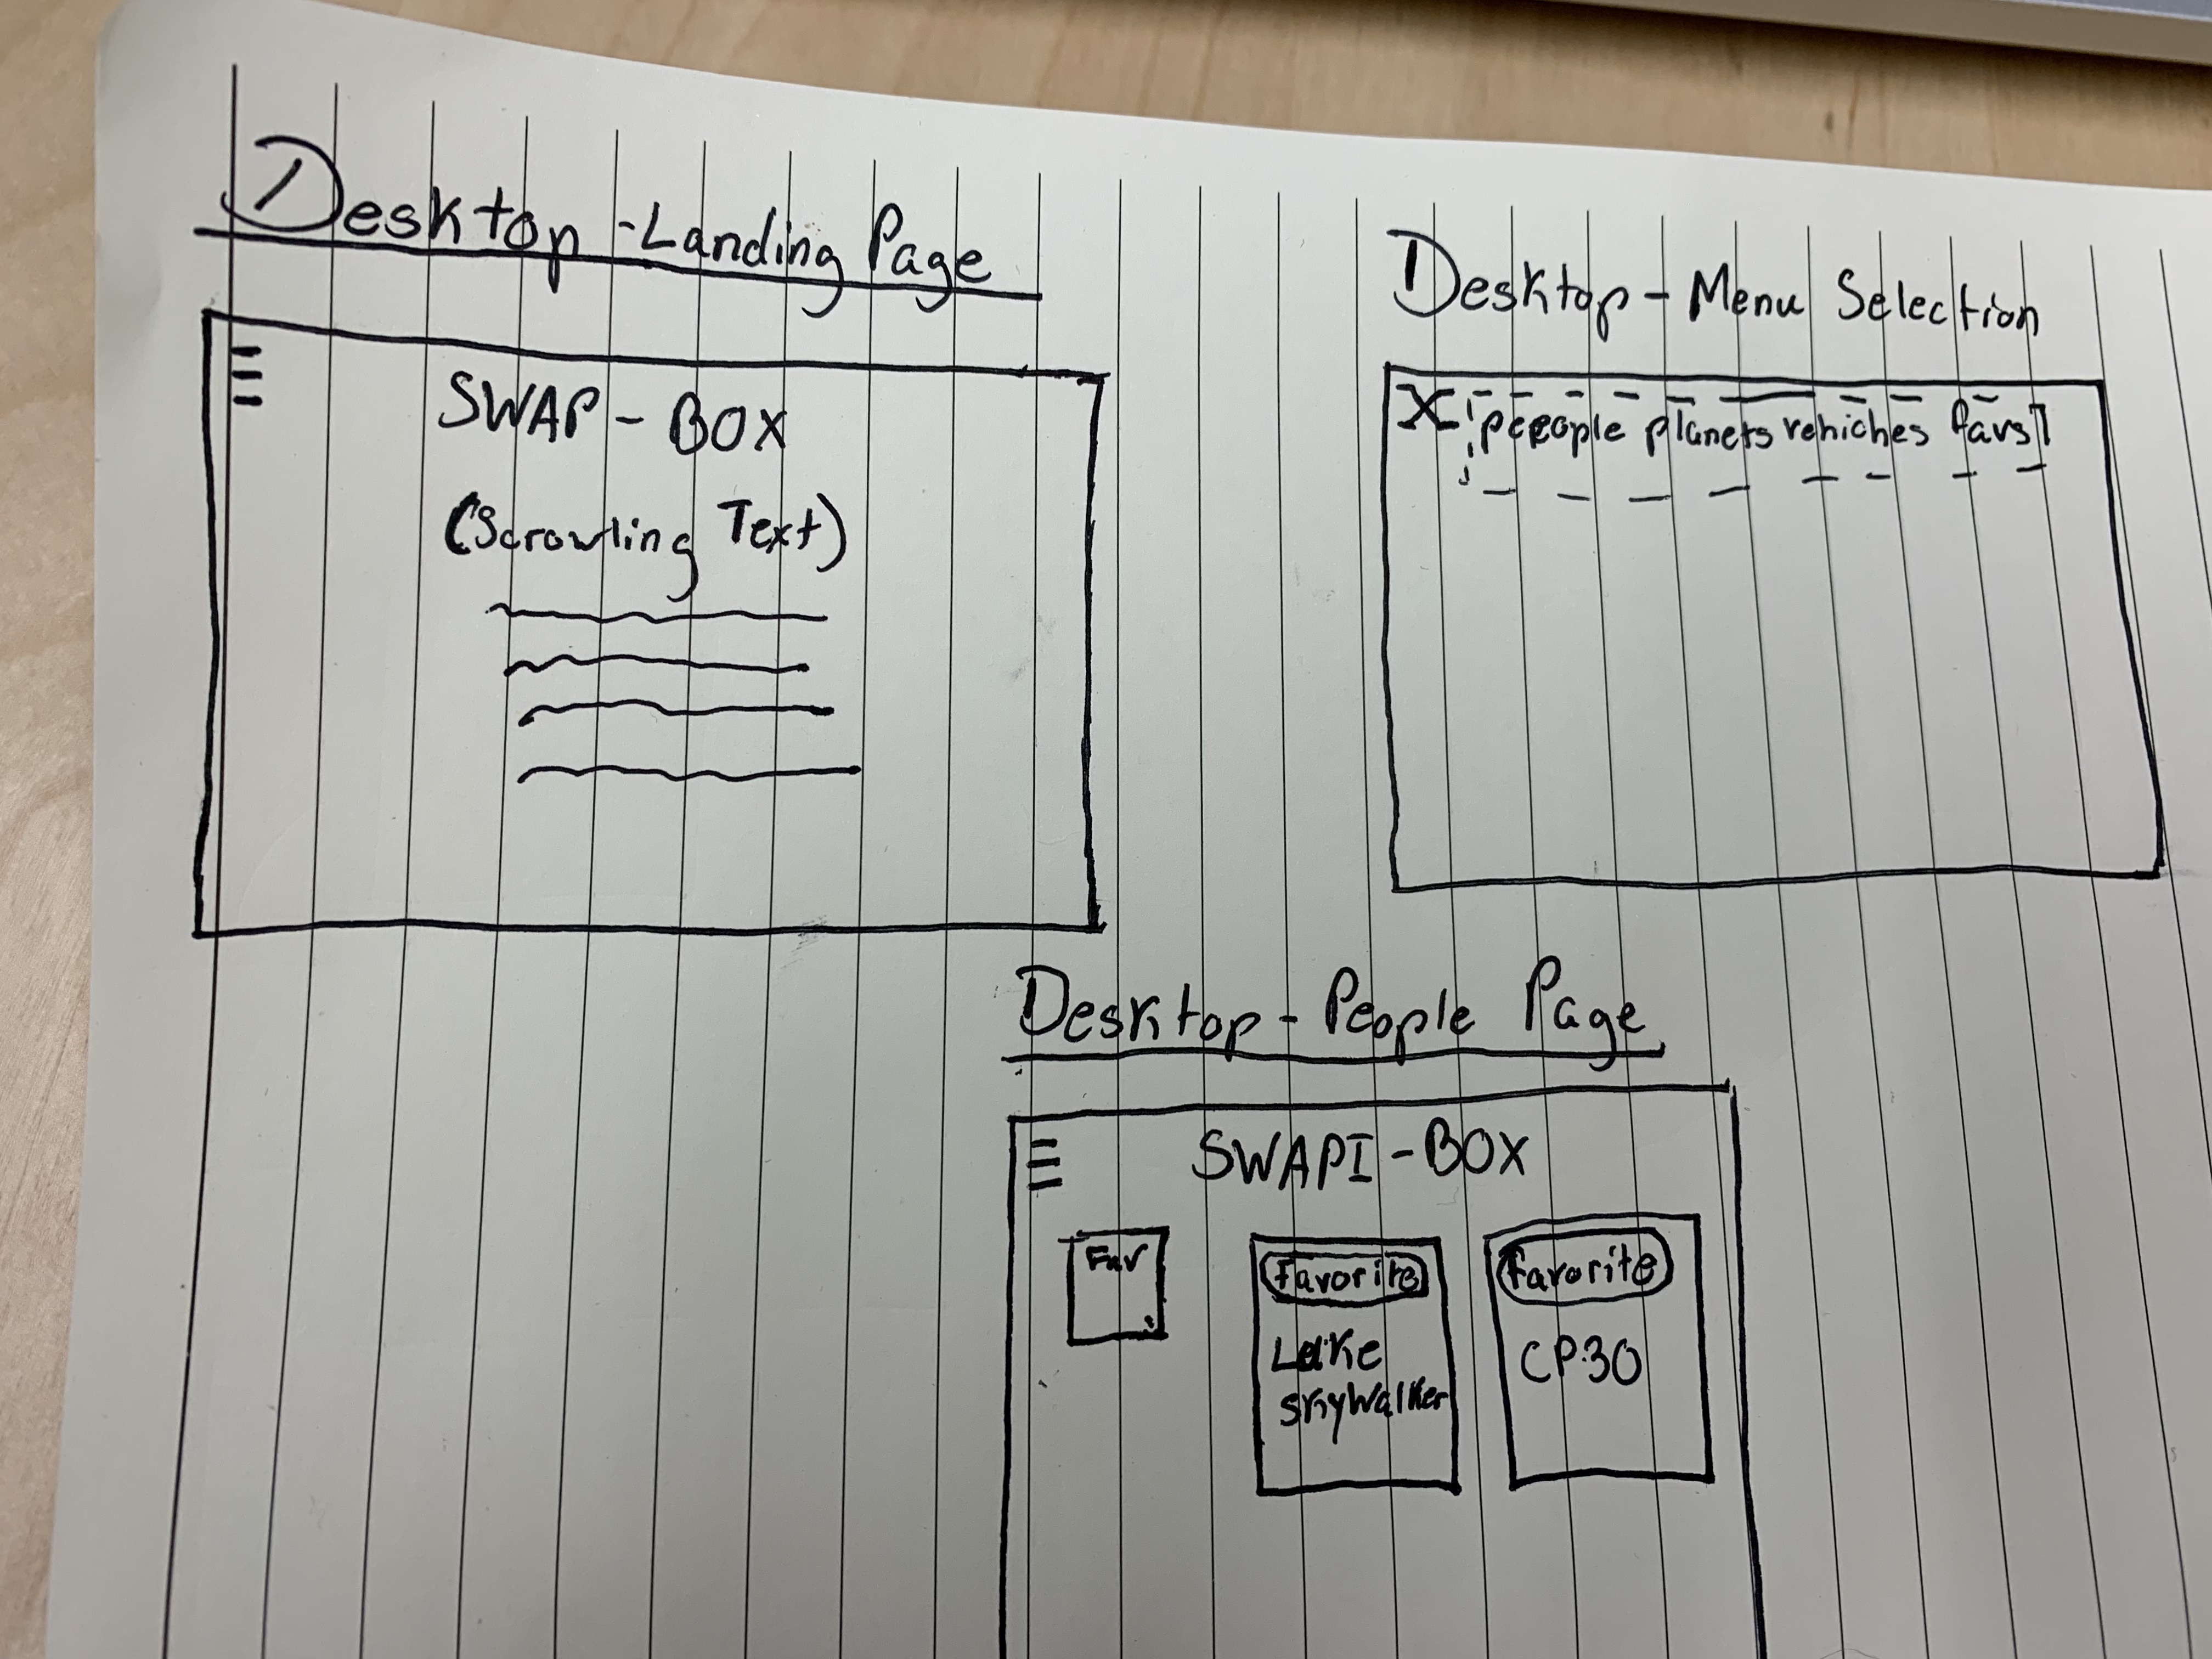 Desktop - Landing Page
SWAP - BOX
(Scrowling Text)
Desktop - Menu Selection
X people planets vehicles favs
Desktop - People Page
SWAPI - BOX
Fav
Favorite
Luke
Skywalker
Favorite
CP30